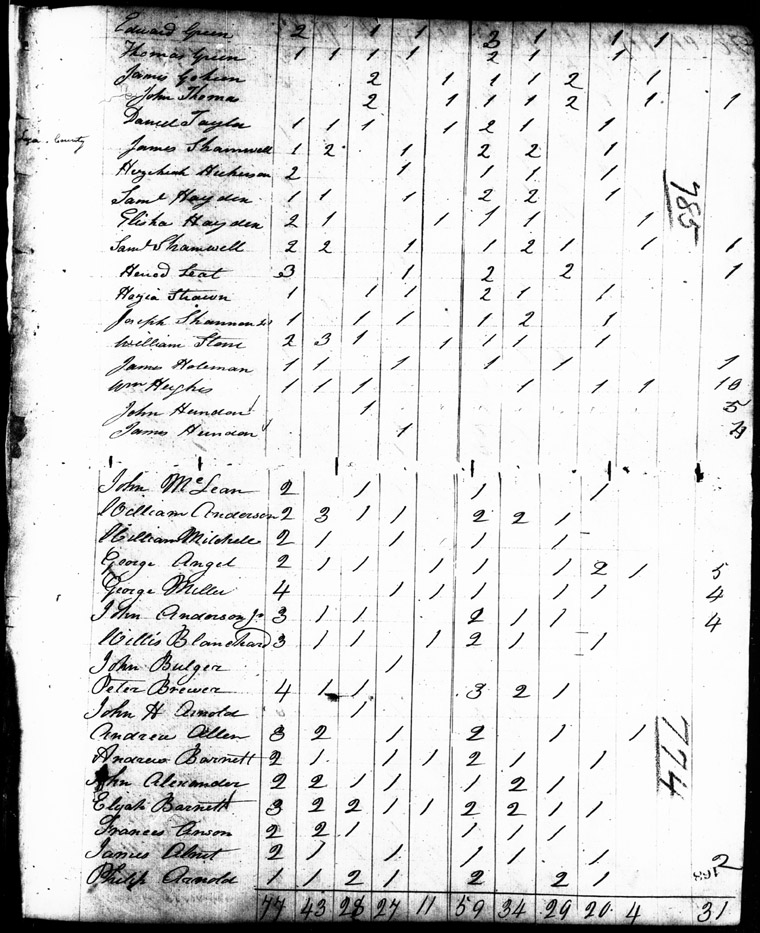 Edward Green 2 1 1 3 1 1 1
Thomas Green 1 1 1 1 2 1 1
James 2 1 1 1 2 1
John Thomas 2 1 1 1 2 1 1
Daniel Taylor 1 1 1 1 2 1 1
County
James Shamwell 1 2 1 2 2 1
Hezekiah Hickerson 2 1 1 1 1
Saml Hayden 1 1 1 2 2 1
785
Elisha Hayden 2 1 1 1 1 1
Saml Shamwell 2 2 1 1 2 1 1 1
Leat 3 1 2 2 1
Strawn 1 1 1 2 1 1
Joseph Shannon 1 1 1 1 2 1
William Stone 2 3 1 1 1 1 1
James Holeman 1 1 1 1 1 1
Wm Hughs 1 1 1 1 1 1 10
John Hundon 1 5
James Hundon 1
John McLean 2 1 1 1
William Anderson 2 3 1 1 2 2 1
William Mitchell 2 1 1 1 1
George Angel 2 1 1 1 1 1 2 1 5
George Miller 4 1 1 1 1 1 4
John Anderson Jr 3 1 1 2 1 1 4
Willis Blanchard 3 1 1 1 2 1 1
John Bulger 1
Peter Brewer 4 1 1 3 2 1
John H Arnold 1
Andrew Allen 3 2 1 2 1 1
774
Andrew Barnett 2 1 1 1 2 1 1 1
John Alexander 2 2 1 1 1 2 1
Elijah Barnett 3 2 2 1 1 2 2 1 1
Frances Anson 2 2 1 1 1 1
James 2 1 1 1 1 1 2
Philip Arnold 1 1 2 1 2 2 1
168
77 43 28 27 11 59 34 29 20 4 31